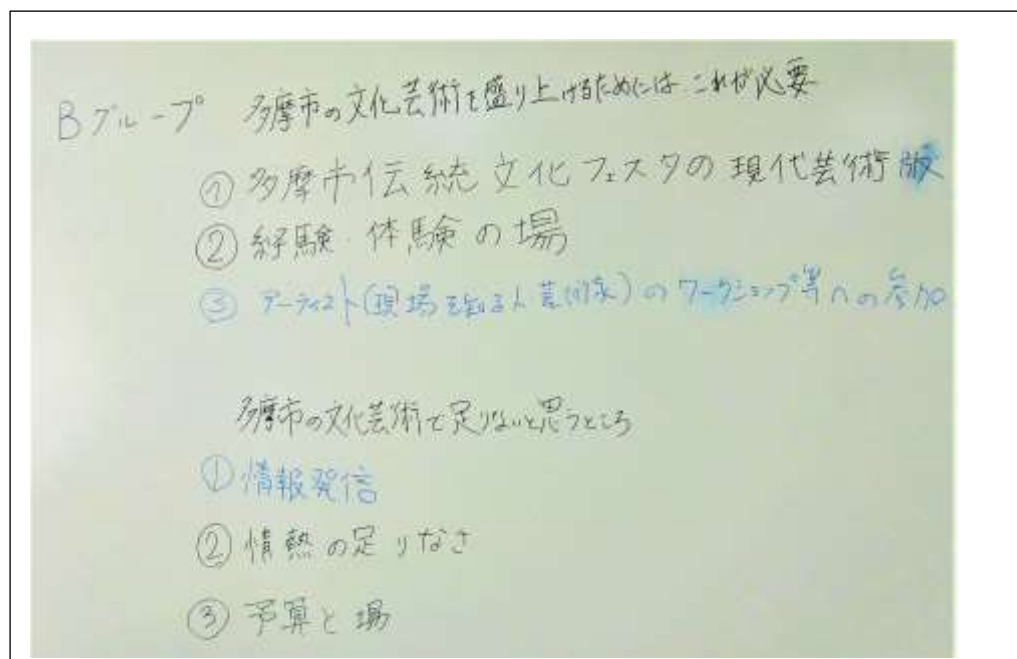 Bグループ 多摩市の文化芸術を盛り上げるためには これが必要
① 多摩市伝統文化フェスタの現代芸術版
② 経験・体験の場
③ アーティスト(現場を知る人 芸術家)のワークショップ等への参加
多摩市の文化芸術で足りないと思うところ
① 情報発信
② 情熱の足りなさ
③ 予算と場